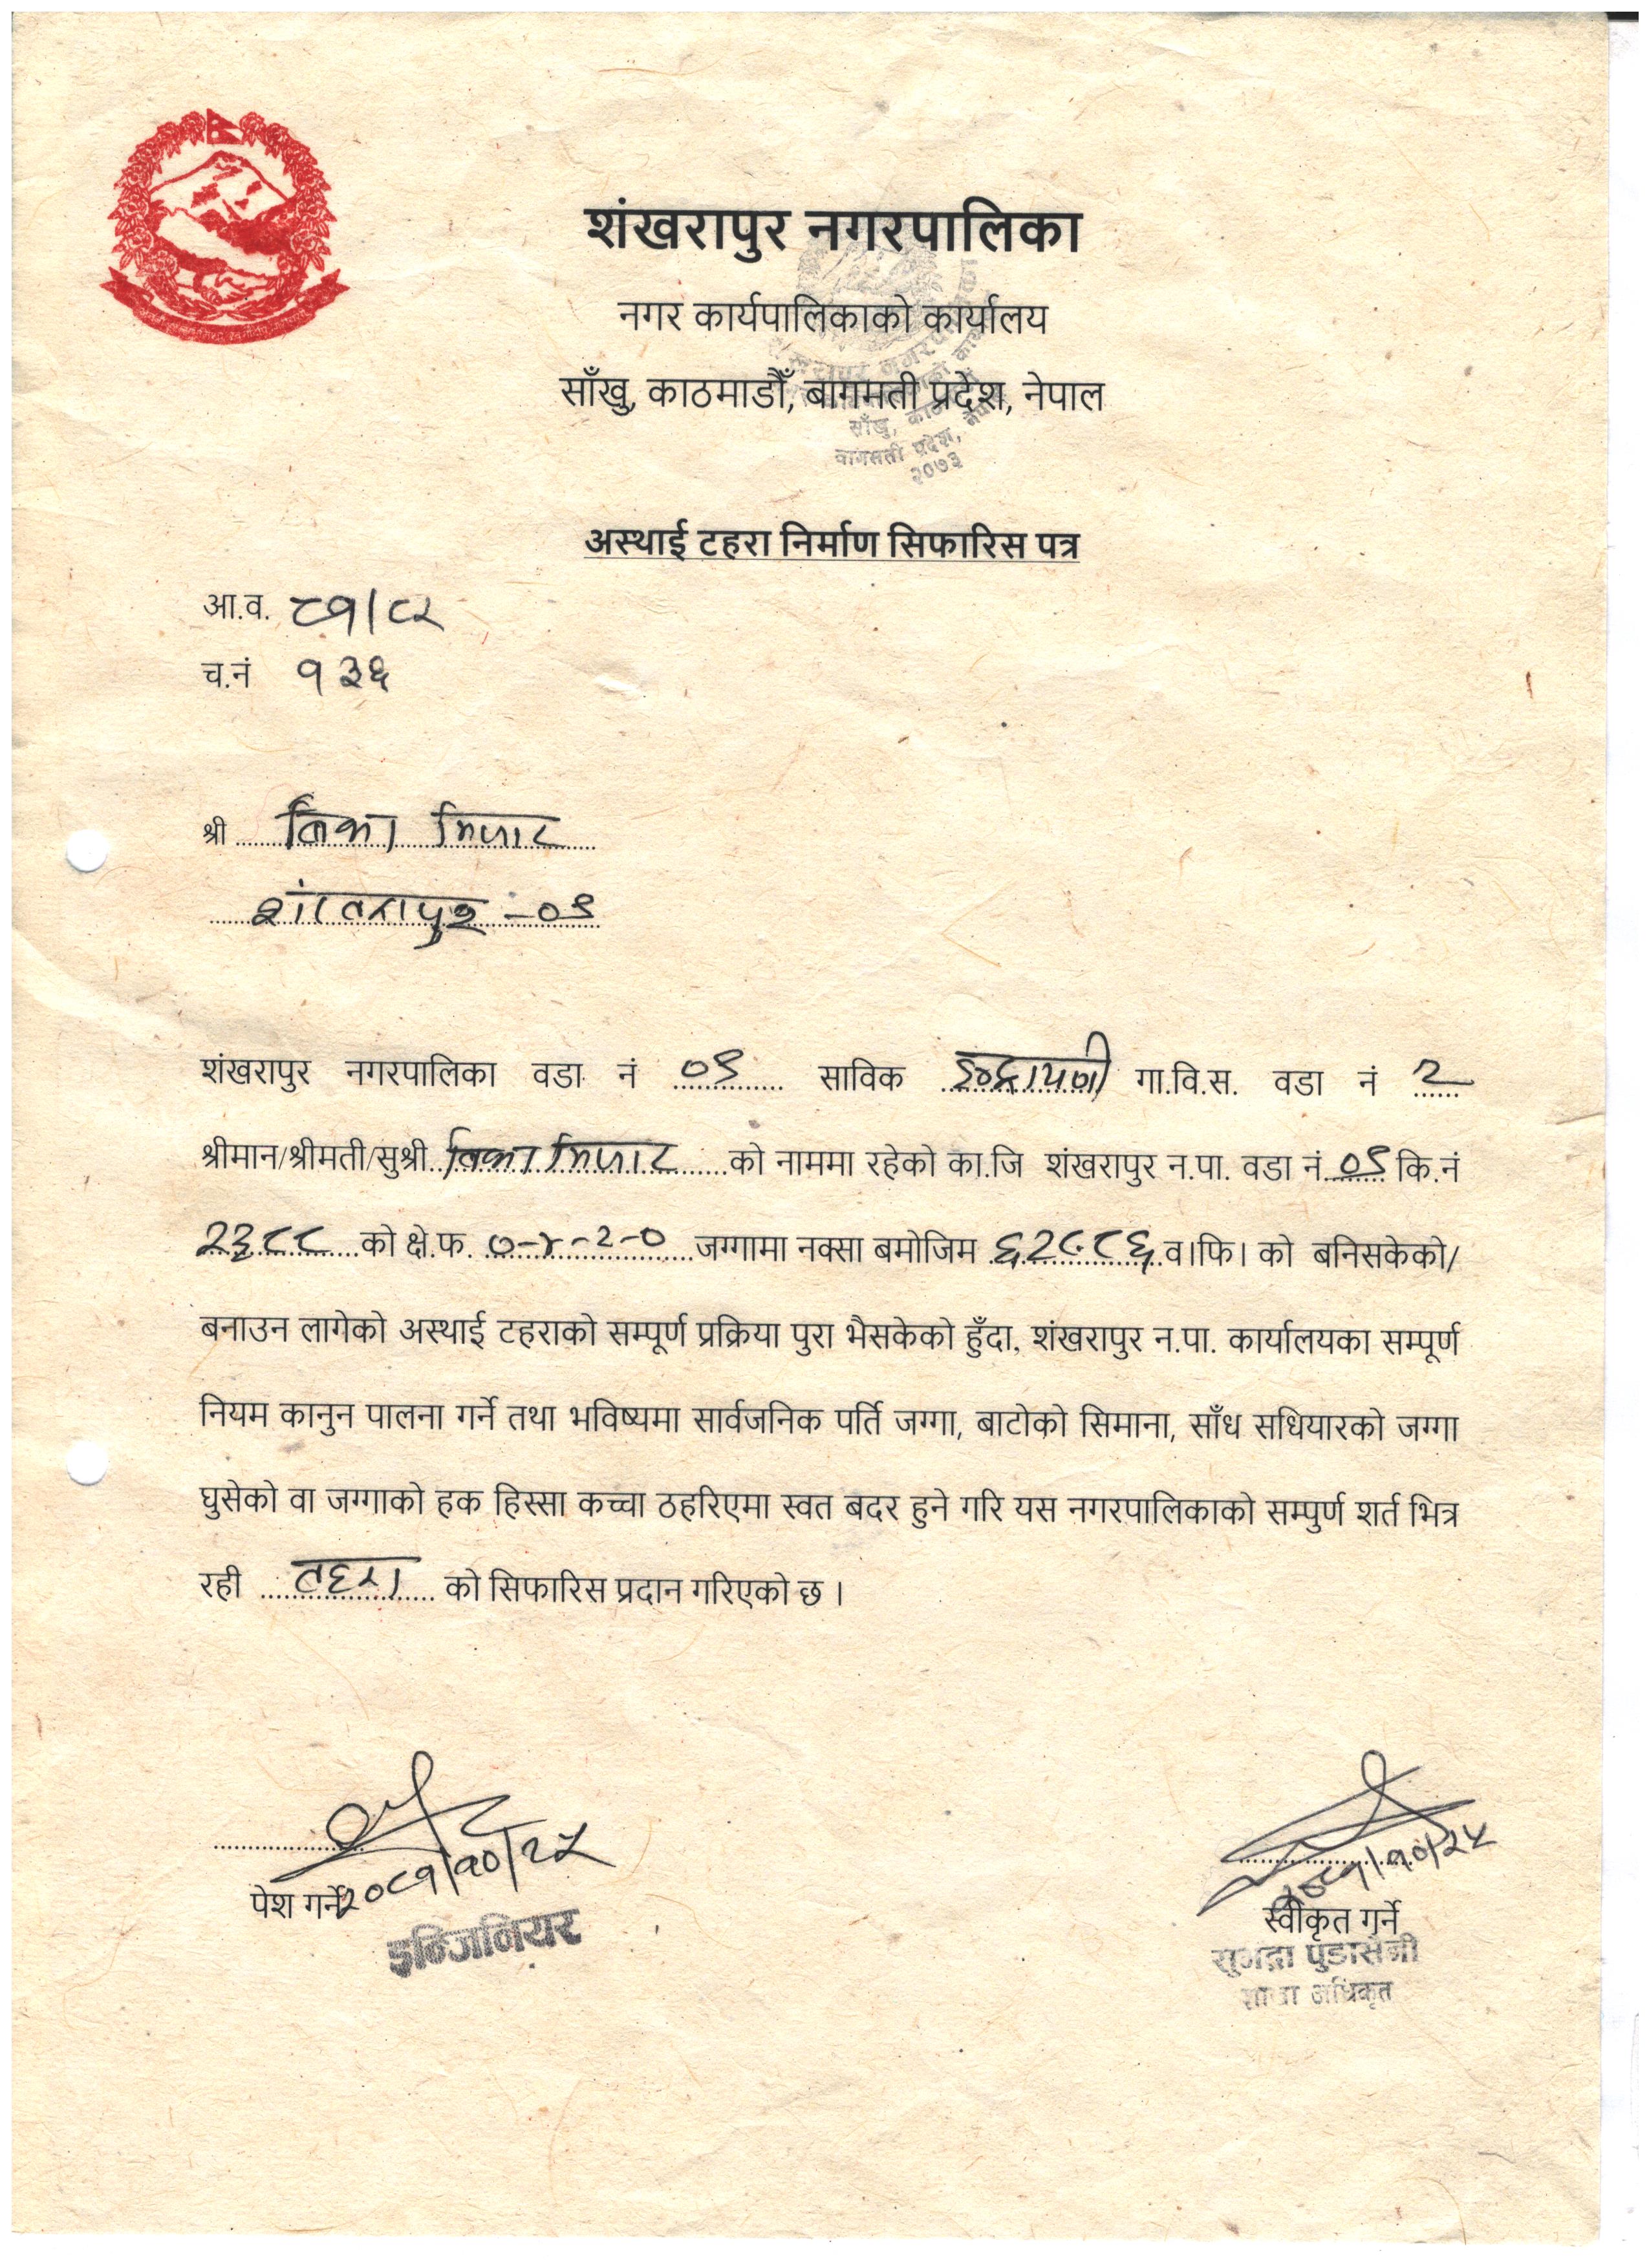 शंखरापुर नगरपालिका
नगर कार्यपालिकाको कार्यालय
साँखु, काठमाडौँ, बागमती प्रदेश, नेपाल
साँखु,
वागमती प्रदेश,
२०७३
अस्थाई टहरा निर्माण सिफारिस पत्र
आ.व. ८१/८२
च.नं १३६
श्री
शंखरापुर -०९
शंखरापुर नगरपालिका वडा नं ०९ साविक इन्द्रायणी गा.वि.स. वडा नं २
श्रीमान/श्रीमती/सुश्री को नाममा रहेको का.जि शंखरापुर न.पा. वडा नं ०९ कि.नं
२३८८ को क्षे.फ. ०-४-२-० जग्गामा नक्सा बमोजिम व।फि। को बनिसकेको/
बनाउन लागेको अस्थाई टहराको सम्पूर्ण प्रक्रिया पुरा भैसकेको हुँदा, शंखरापुर न.पा. कार्यालयका सम्पूर्ण
नियम कानुन पालना गर्ने तथा भविष्यमा सार्वजनिक पर्ति जग्गा, बाटोको सिमाना, साँध सधियारको जग्गा
घुसेको वा जग्गाको हक हिस्सा कच्चा ठहरिएमा स्वत बदर हुने गरि यस नगरपालिकाको सम्पुर्ण शर्त भित्र
रही टहरा को सिफारिस प्रदान गरिएको छ ।
२०८१/१०/२५ २०८१/१०/२५
पेश गर्ने स्वीकृत गर्ने
इन्जिनियर सुभद्रा पुडासैनी
शाखा अधिकृत